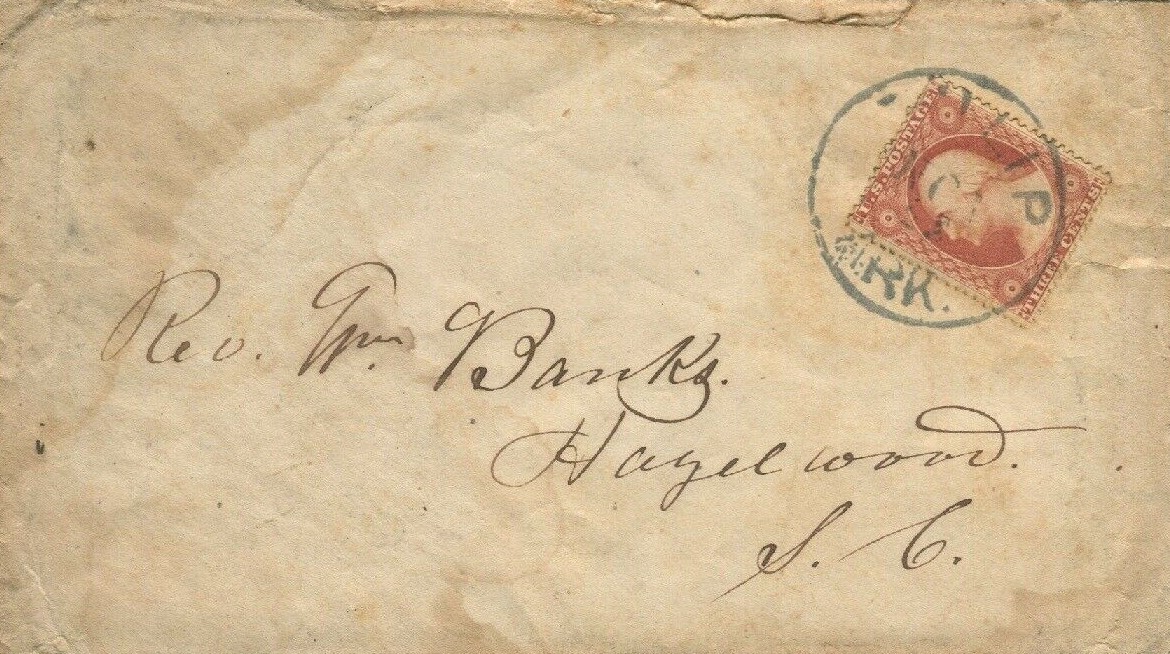 TULIP
ARK.
U.S. POSTAGE
THREE CENTS
Rev. Wm. Banks.
Hazelwood.
S. C.